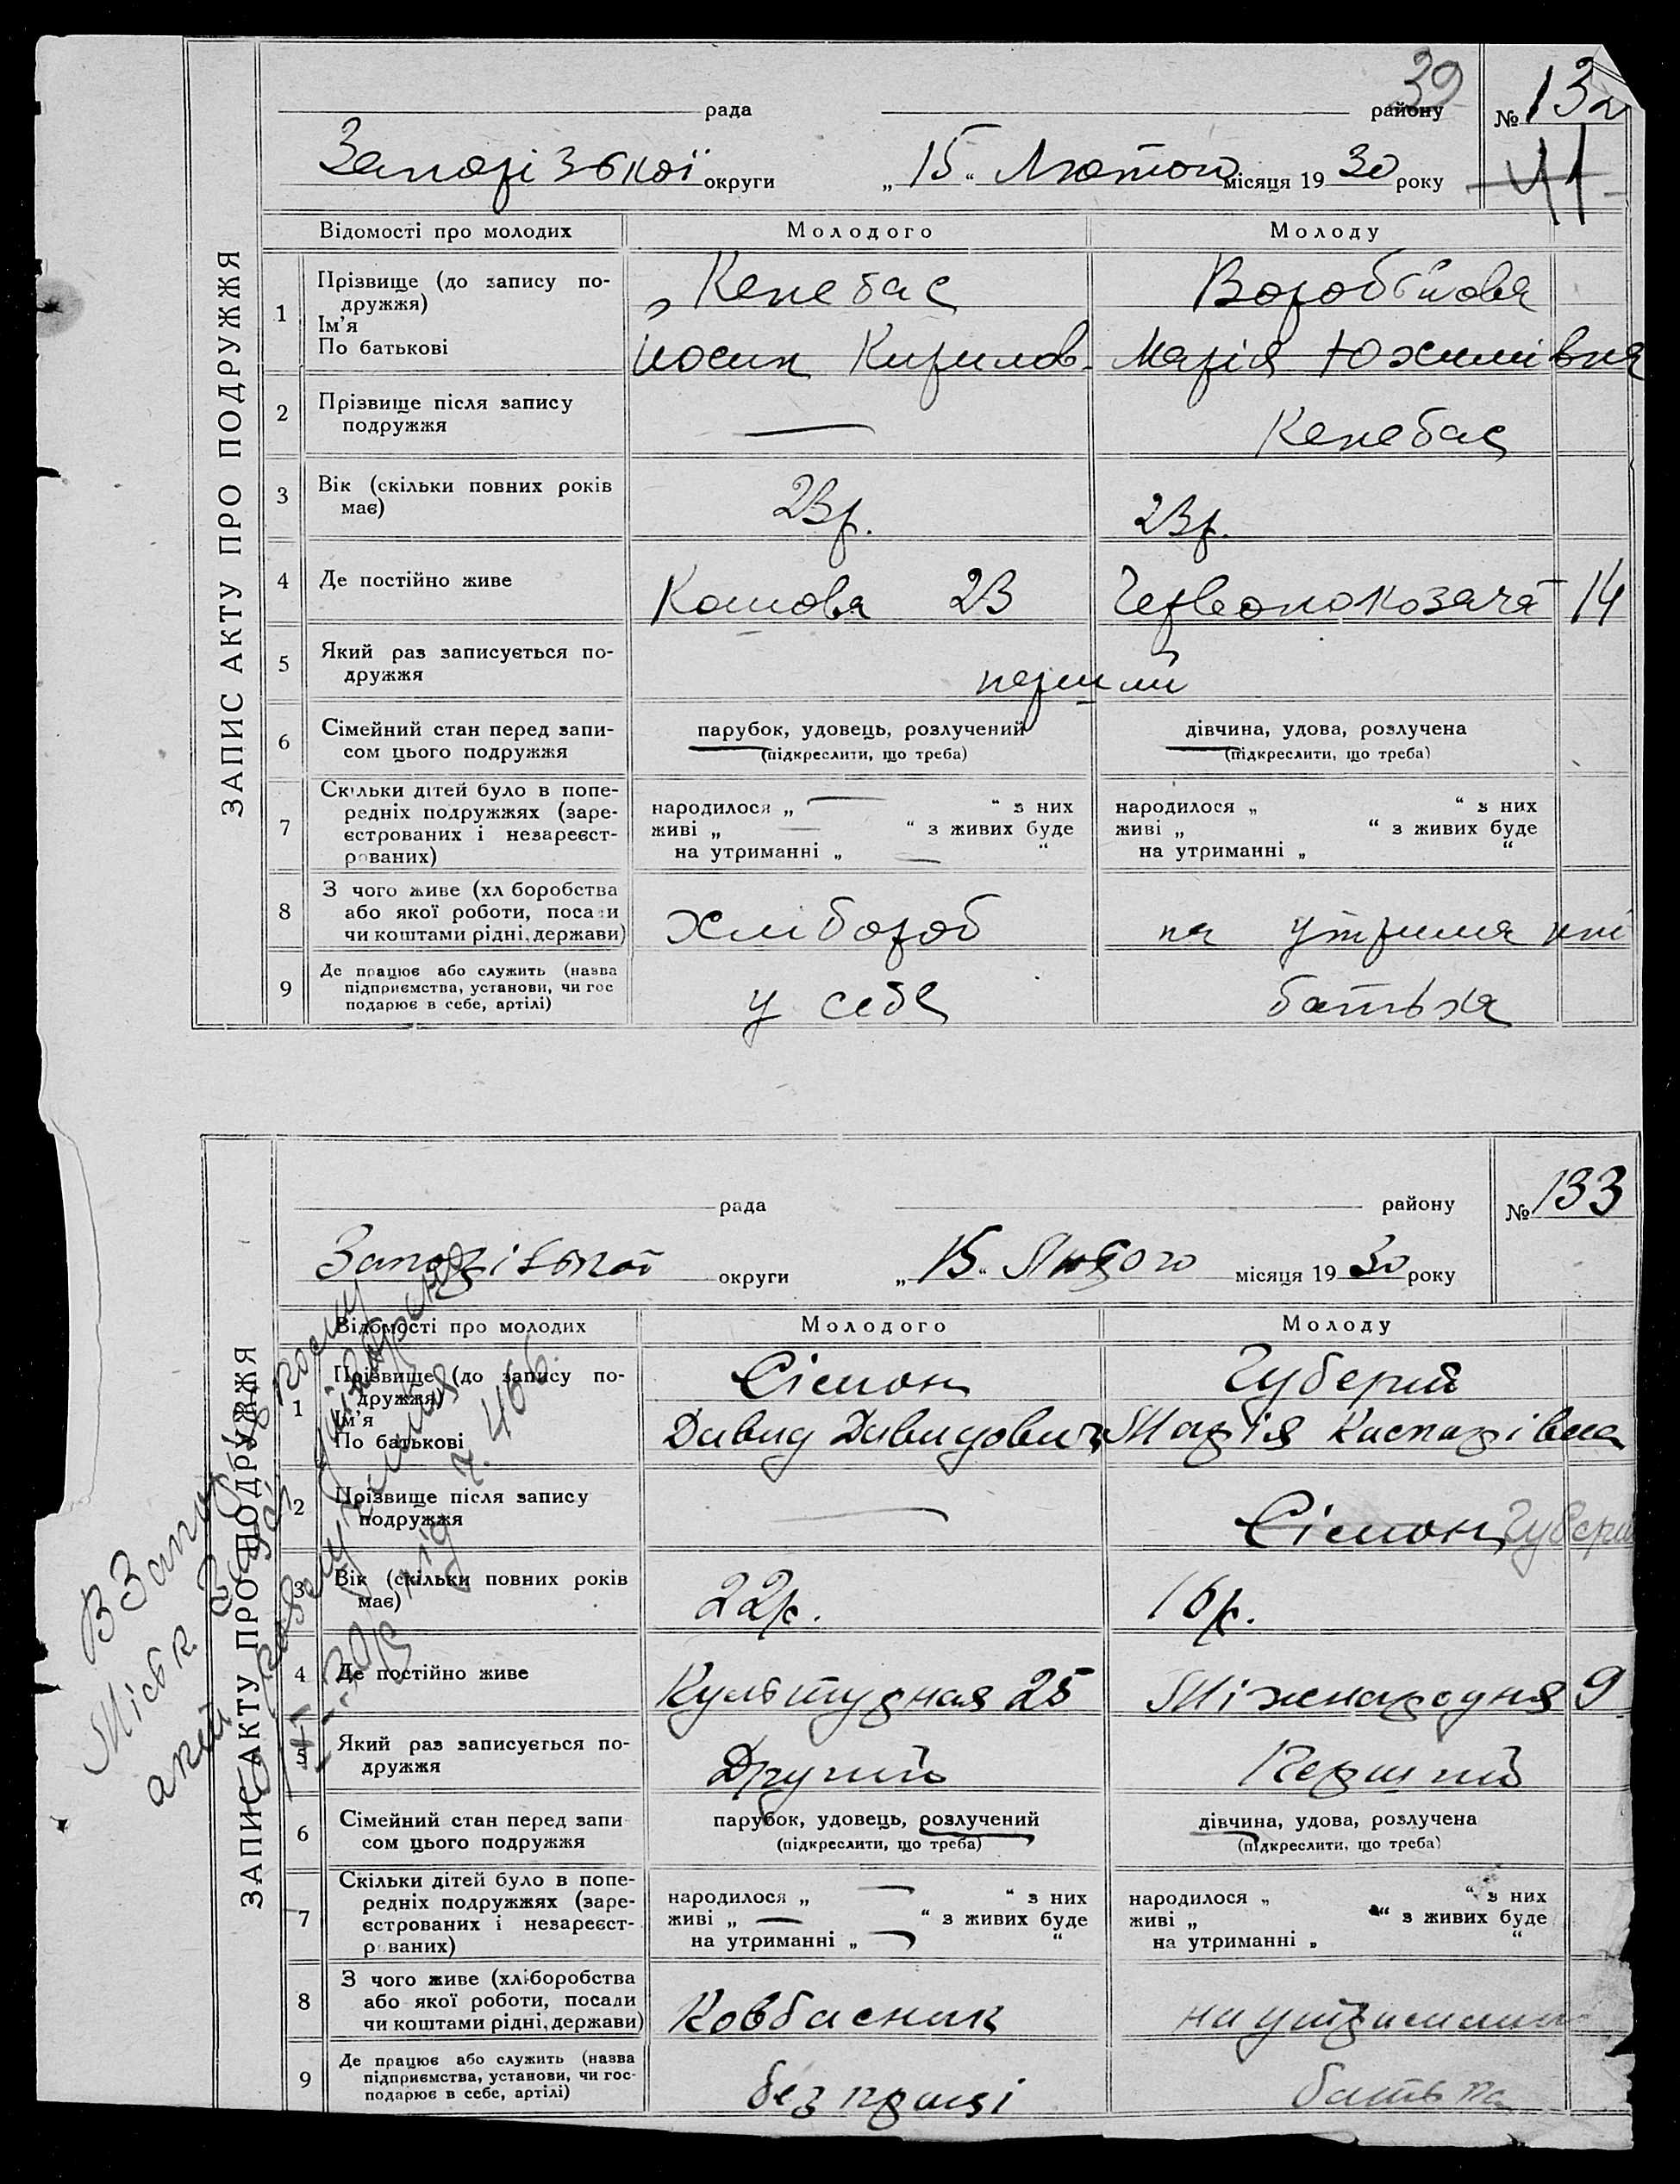 39
рада району № 132
Запорізької округи „15“ Лютого місяця 1930 року
41
ЗАПИС АКТУ ПРО ПОДРУЖЖЯ
Відомості про молодих Молодого Молоду
1 Прізвище (до запису по-
дружжя)
Ім’я
По батькові
Кенебас Воробйова
Йосип Кирилов. Марія Юхимівна
2 Прізвище після запису
подружжя
— Кенебас
3 Вік (скільки повних років
має)
23 р. 23 р.
4 Де постійно живе Кошова 23 Червонокозача 14
5 Який раз записується по-
дружжя
перший
6 Сімейний стан перед запи-
сом цього подружжя
парубок, удовець, розлучений дівчина, удова, розлучена
(підкреслити, що треба) (підкреслити, що треба)
7 Скільки дітей було в попе-
редніх подружжях (заре-
єстрованих і незареєст-
рованих)
народилося „ — “ з них народилося „ “ з них
живі „ — “ з живих буде живі „ “ з живих буде
на утриманні „ — “ на утриманні „ “
8 З чого живе (хл боробства
або якої роботи, посади
чи коштами рідні, держави)
Хлібороб на утриманні
9 Де працює або служить (назва
підприємства, установи, чи гос
подарює в себе, артілі)
у себе батька
рада району № 133
Запорізької округи „15“ Лютого місяця 1930 року
ЗАПИС АКТУ ПРО ПОДРУЖЖЯ
Відомості про молодих Молодого Молоду
1 Прізвище (до запису по-
дружжя)
Ім’я
По батькові
Сімон Губерий
Давид Давидович Марія Каспарівна
2 Прізвище після запису
подружжя
— Сімон Губерий
3 Вік (скільки повних років
має)
22 р. 16 р.
4 Де постійно живе Культурная 25 Міжнародня 9
5 Який раз записується по-
дружжя
Другий Перший
6 Сімейний стан перед запи-
сом цього подружжя
парубок, удовець, розлучений дівчина, удова, розлучена
(підкреслити, що треба) (підкреслити, що треба)
7 Скільки дітей було в попе-
редніх подружжях (заре-
єстрованих і незареєст-
рованих)
народилося „ — “ з них народилося „ “ з них
живі „ — “ з живих буде живі „ “ з живих буде
на утриманні „ — “ на утриманні „ “
8 З чого живе (хліборобства
або якої роботи, посади
чи коштами рідні, держави)
Ковбасник на утриманні
9 Де працює або служить (назва
підприємства, установи, чи гос-
подарює в себе, артілі)
без праці батька
В Запорізькому
Міськ.
під ч. 466.